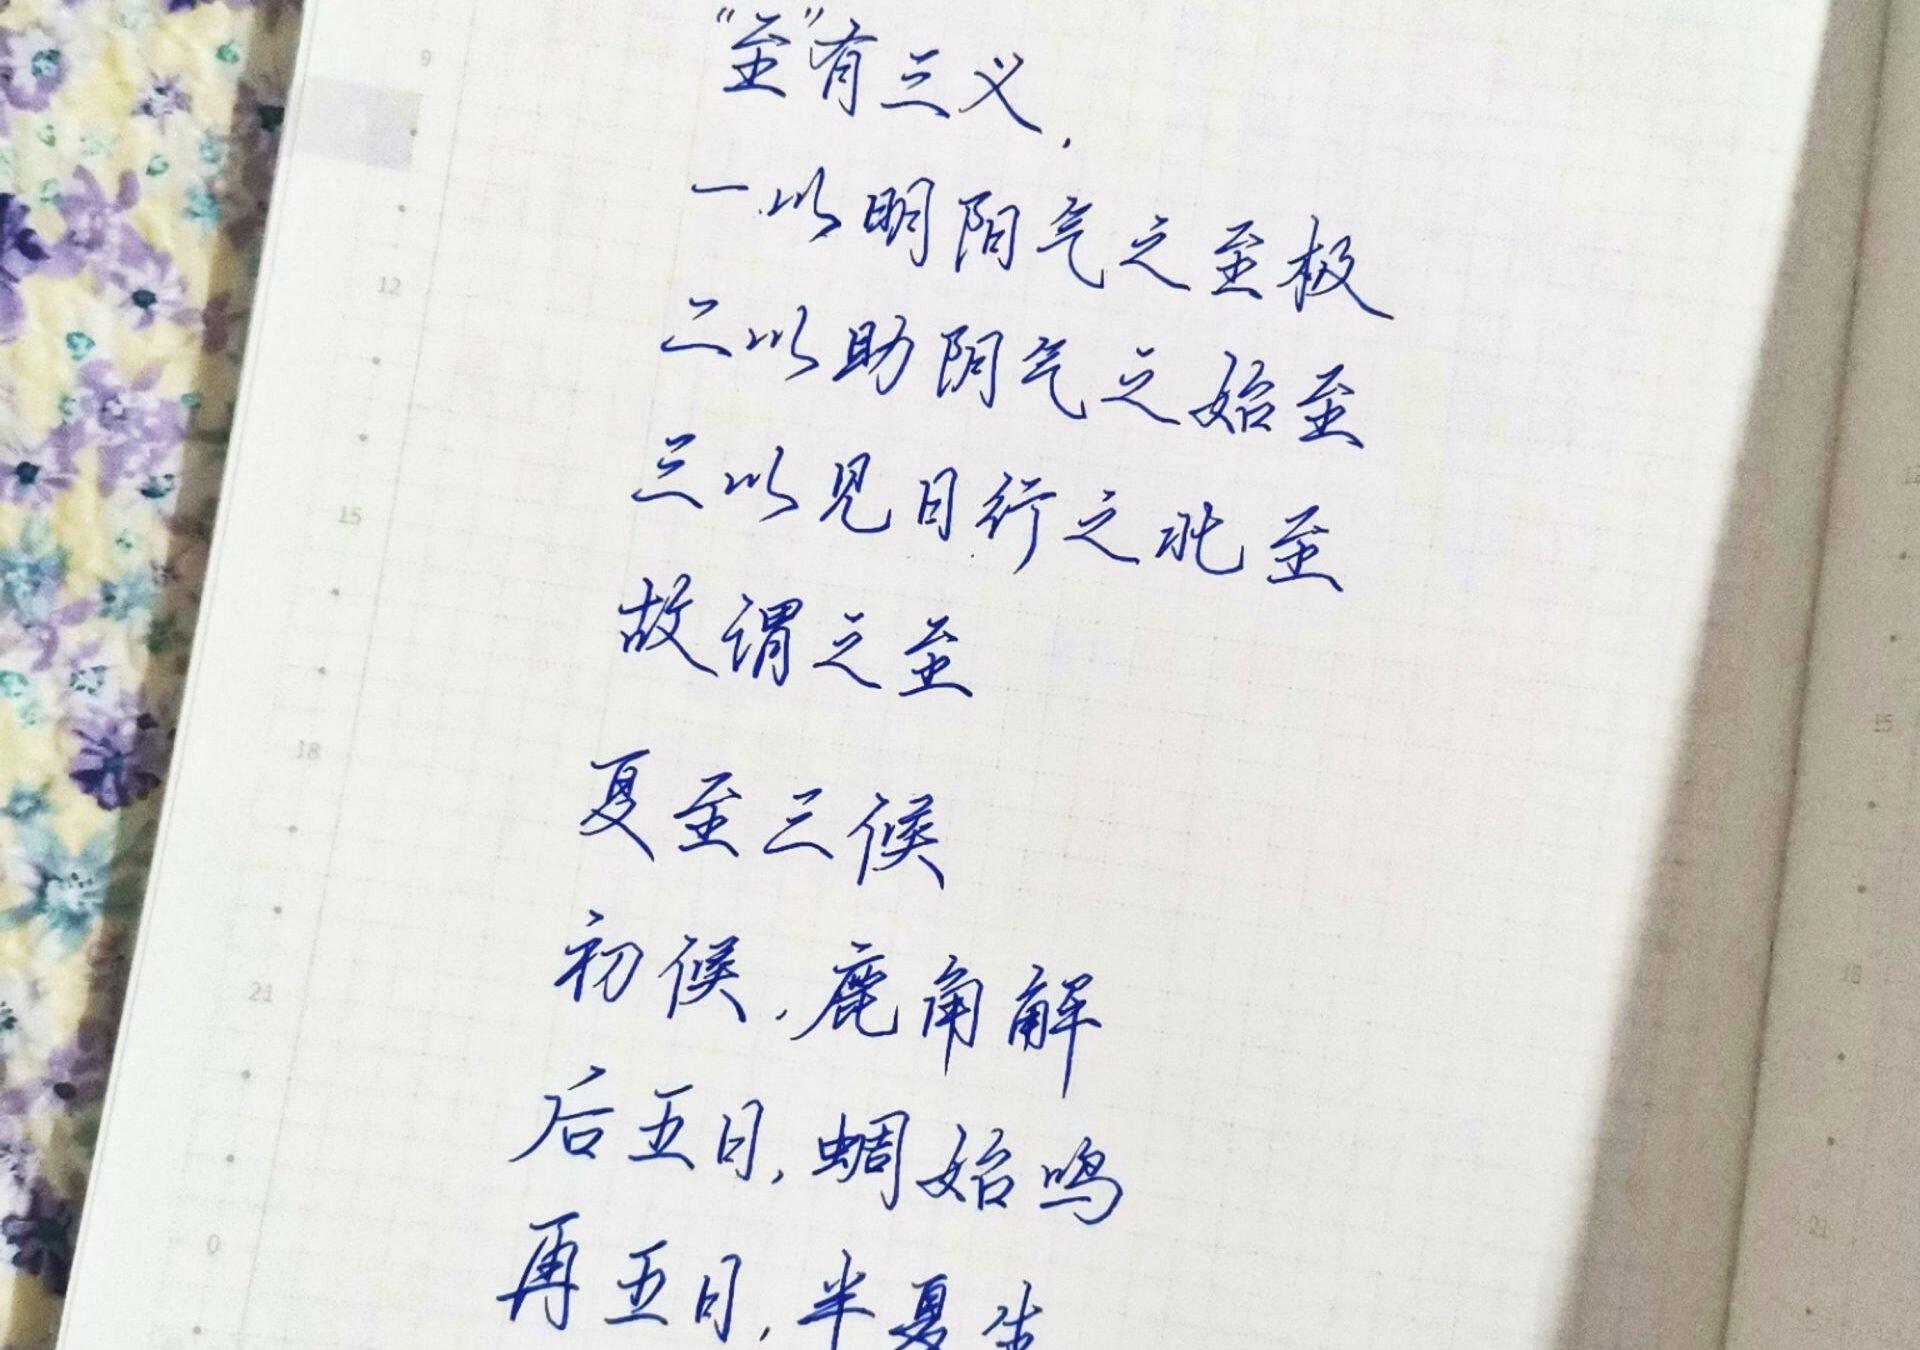 “至”有三义，
一以明阳气之至极
二以助阴气之始至
三以见日行之北至
故谓之至
夏至三候
初候，鹿角解
后五日，蜩始鸣
再五日，半夏生
9
12
15
18
21
0
15
18
21